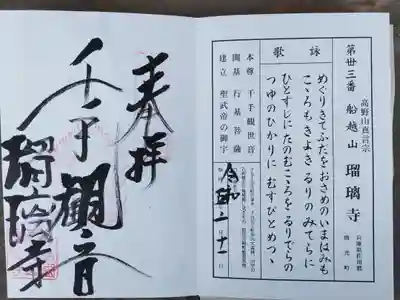 高野山真言宗
第廿三番 船越山 瑠璃寺
兵庫県佐用郡
南光町
詠歌
めぐりきてふだをおさめのいまはみも
こゝろもきよきるりのみてらに
ひとすじにたのむこころをるりでらの
つゆのひかりに むすびとめつゝ
本尊 千手観世音
開基 行基菩薩
建立 聖武帝の御宇
奉拝
千手観音
瑠璃寺